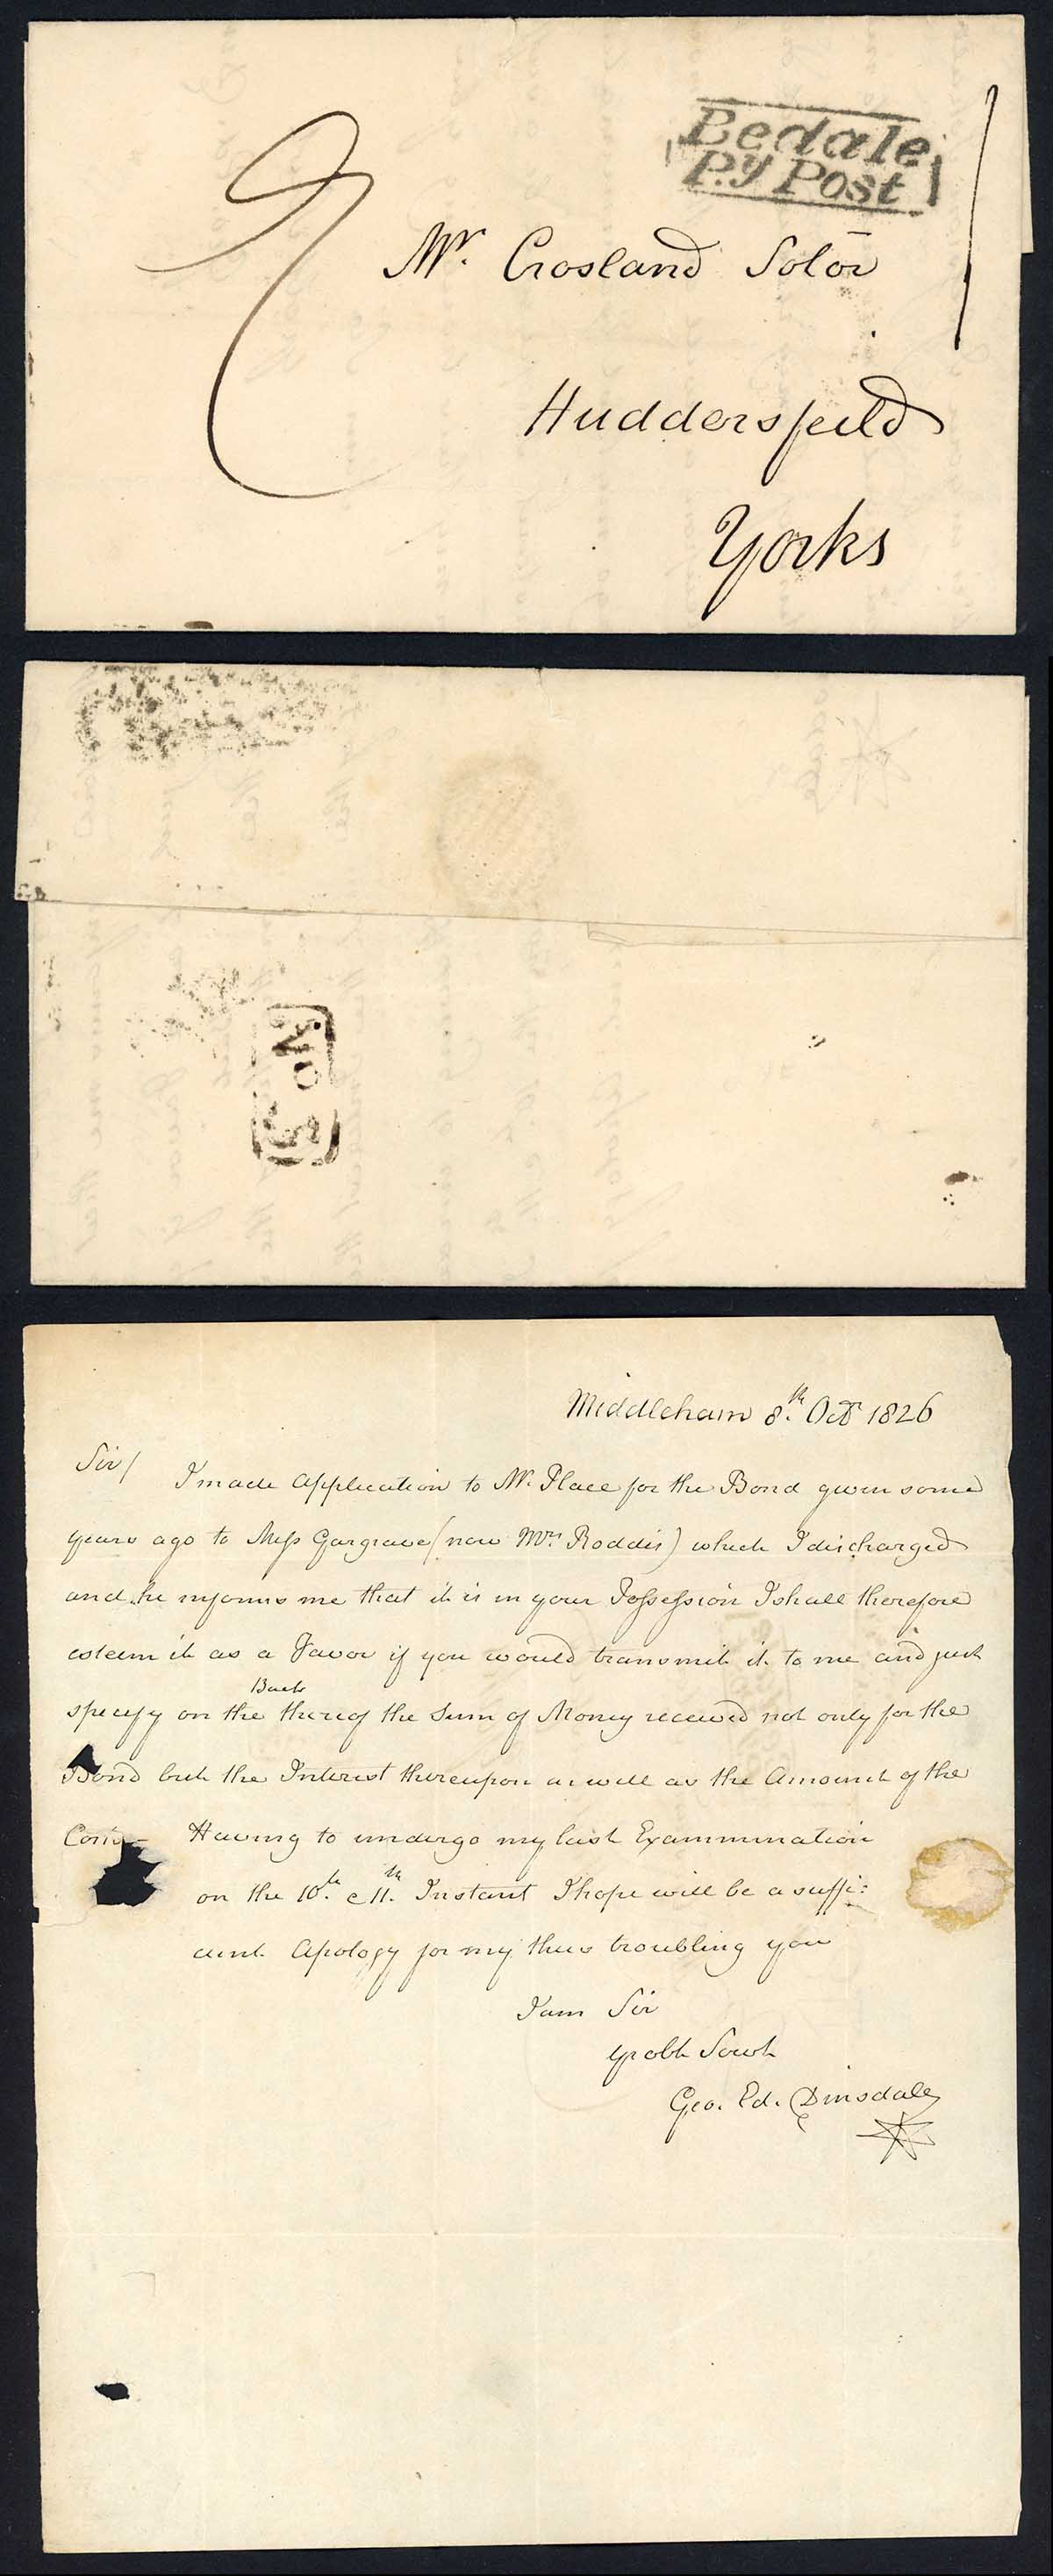 Bedale
P.y Post
1
Mr. Crosland Solor
Huddersfeild
Yorks
No. 5
Middleham 8.th Oct 1826
Sir/ I made Application to Mr. Place for the Bond given some
years ago to Miss Gargrave (now Mrs Roddis) which I discharged
and he informs me that it is in your Possession I shall therefore
esteem it as a Favor if you would transmit it to me and just
Back
specify on the thereof the Sum of Money received not only for the
Bond but the Interest thereupon as well as the Amount of the
Costs – Having to undergo my last Exammination
on the 10.th & 11.th Instant I hope will be a suffi:
cient Apology for my thus troubling you
I am Sir
yr obt Sert
Geo. Ed. Dinsdale